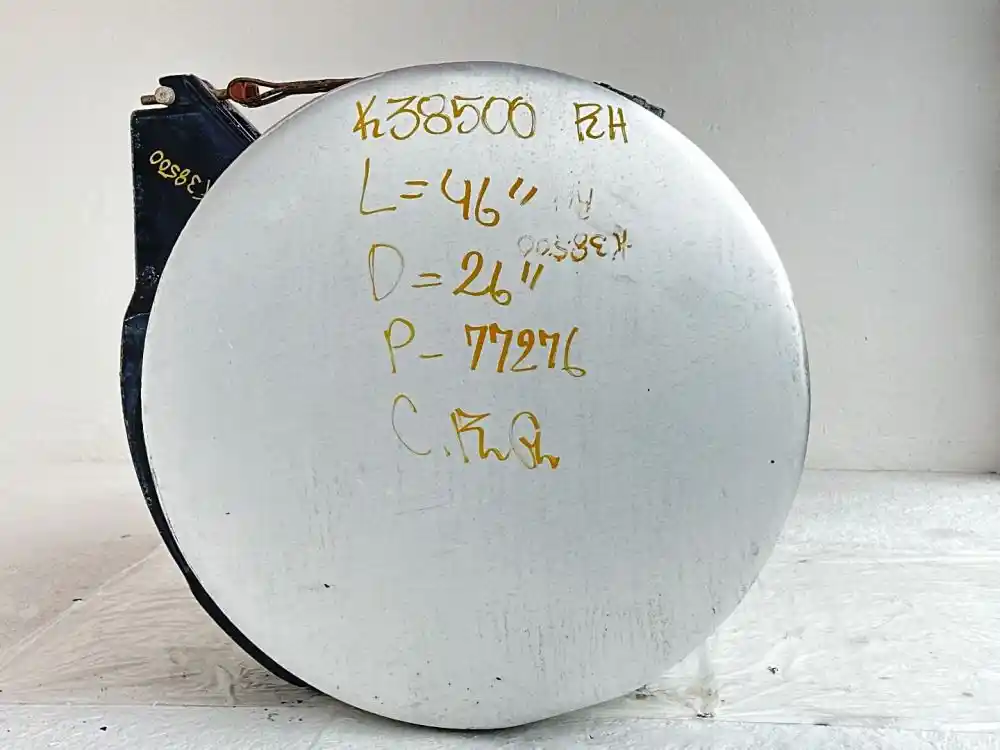 K38500 RH
L = 46"
D = 26"
P - 77276
K38500
K38500